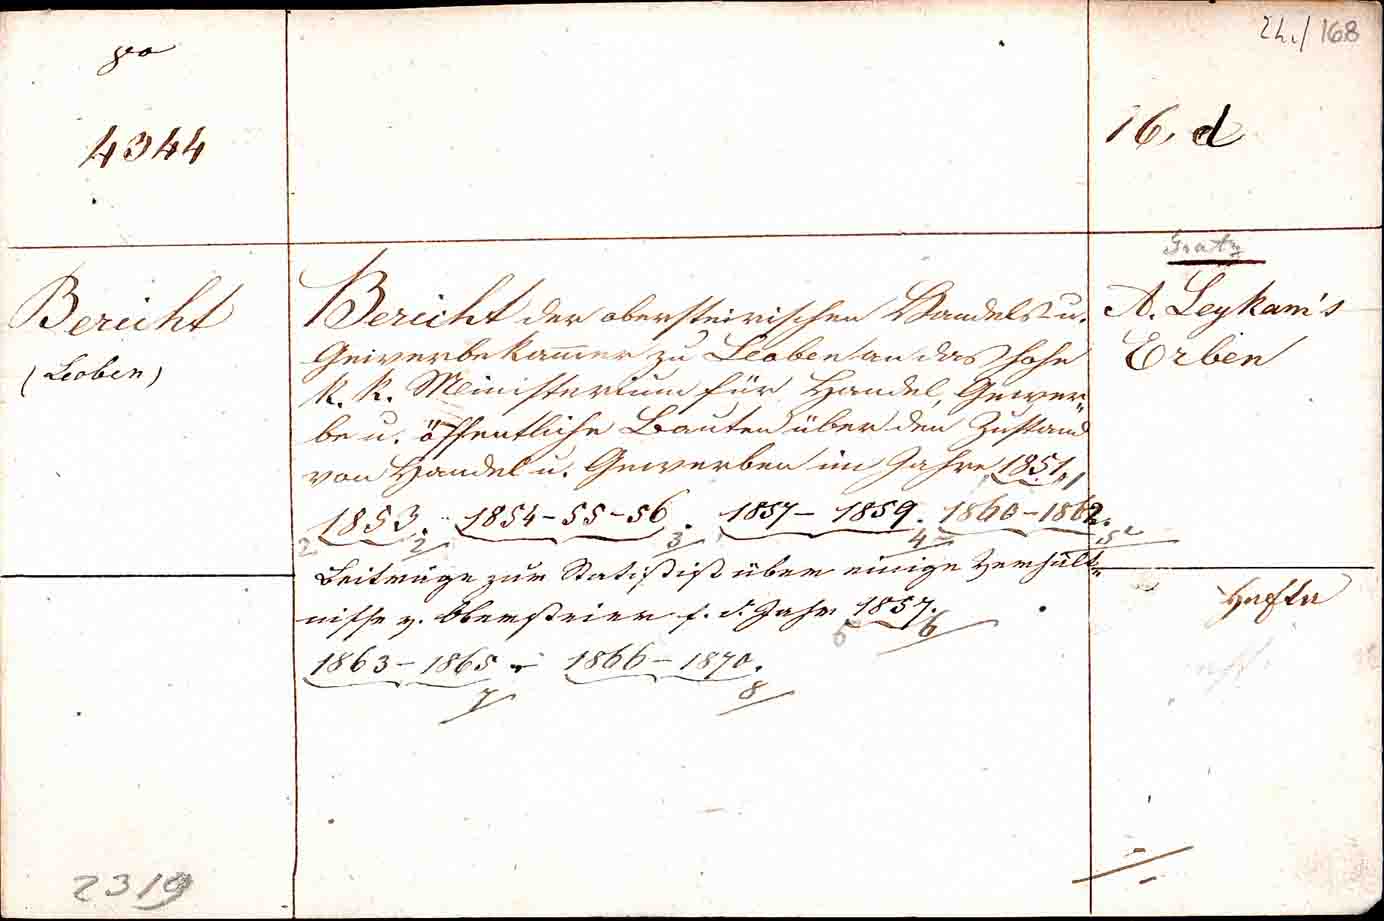 8vo
4344
24./168
16, d
Bericht
(Leoben)
Bericht der obersteirischen Handels u.
Gewerbekam̅er zu Leoben an das hohe
k. k. Ministerium für Handel, Gewer-
be u. öffentliche Bauten über den Zustand
von Handel u. Gewerben im Jahre 1851. 1
2 1853. 2 1854-55-56. 3 1857-1859. 4 1860-1862. 5
Beiträge zur Statistik über einige Verhält-
nisse v. Obersteier f. d. Jahr 1857. 6
1863-1865 7 1866-1870. 8
Gratz
A. Leykam's
Erben
Hefte
2319